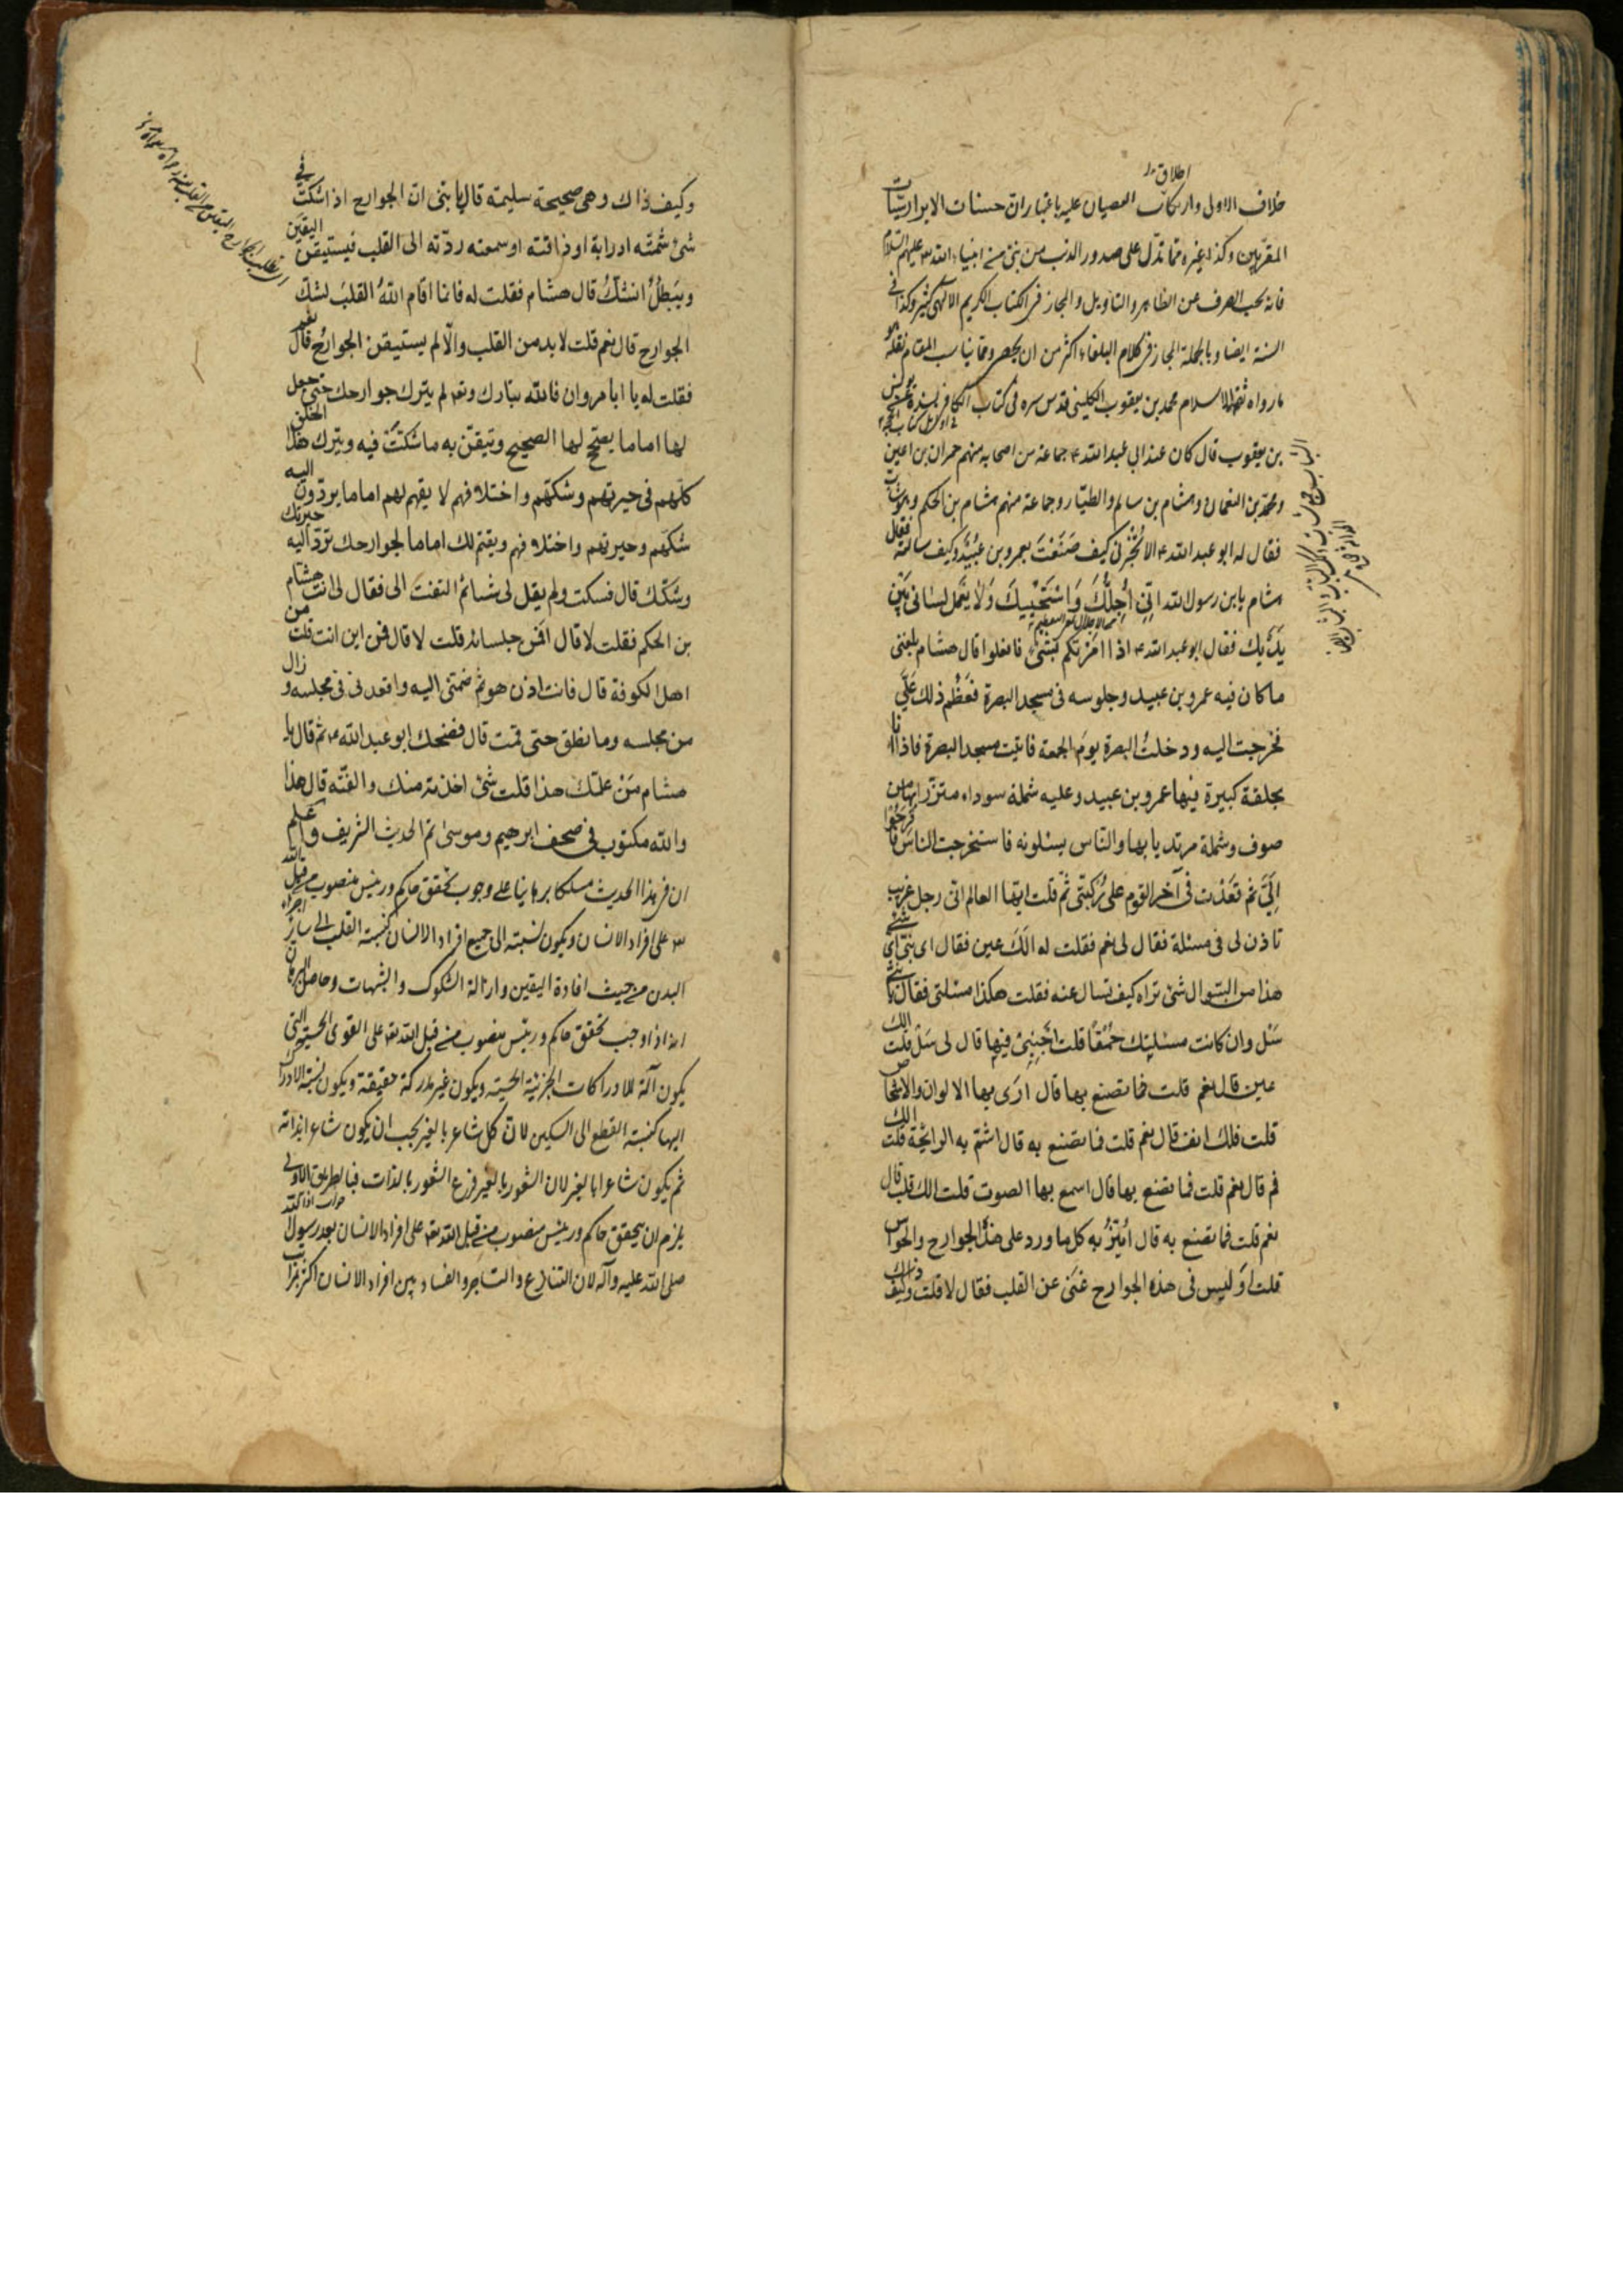 اطلاق
خلاف الاولى وارتكاب العصيان عليه باعتبار ان حسنات الابرار سيئات
المقربين وكذا غيره مما تدل على صدور الذنب من بنى من انبياء الله عليهم السلام
فانه يجب الصرف عن الظاهر والتاويل والمجاز فى الكتاب الكريم الالهى كثير وكذا فى
السنة ايضا وبالجملة المجاز فى كلام البلغاء اكثر من ان يحصر ومما يناسب المقام نقله هو
ما رواه ثقة الاسلام محمد بن يعقوب الكلينى قدس سره فى كتاب الكافى بسنده عن يونس
بن يعقوب قال كان عند ابى عبد الله ع جماعة من اصحابه منهم حمران بن اعين
ومحمد بن النعمان وهشام بن سالم والطيار وجماعة منهم هشام بن الحكم وهو شاب
فقال له ابو عبد الله ع الا تُخْبِرُنى كيف صَنَعْتَ بعمرو بن عُبَيْد وكيف سالته فقال
هشام يابن رسول الله اِنّى اُجِلُّكَ وَاَسْتَحْيِيكَ وَلَا يَعْمَلُ لسانى بَيْنَ
يَدَيْك فقال ابو عبد الله ع اذا امرتكم بشئ فافعلوا قال هشام بلغنى
ما كان فيه عمرو بن عبيد وجلوسه فى مسجد البصرة فَعَظُمَ ذلك عَلَىَّ
فخرجت اليه ودخلتُ البصرة يومَ الجمعة فاتيت مسجد البصرة فاذا انا
بحلقة كبيرة فيها عمرو بن عبيد وعليه شملة سوداء متزر بها من
صوف وشملة مرتد يا بها والناس يسئلونه فاستفرجت الناس فافرجوا
اِلَىَّ ثم قعدت فى آخر القوم على رُكبتى ثمّ قلت ايها العالم انى رجل غريب
تاذن لى فى مسئلة فقال لى نعم فقلت له اَلَكَ عين فقال اى بنى اى شئ
هذا من السؤال شئ تراه كيف تسال عنه فقلت هكذا مسئلتى فقال يا بنى
سَل وان كانت مسئلتك حُمْقًا قلت اَجِبْنِىْ فيها قال لى سَلْ قلت الك
عين قال نعم قلت فما تصنع بها قال ارَى بها الالوان والاشخاص
قلت فلك انف قال نعم قلت فما تصنع به قال اشتم به الرايحة قلت الك
فم قال نعم قلت فما تصنع بها قال اسمع بها الصوت قلت الك قلب قال
نعم قلت فما تصنع به قال اُمَيِّزُ به كل ما ورد على هذه الجوارح والحواس
قلت اَوَ ليس فى هذه الجوارح غنىً عن القلب فقال لا قلت وكيف ذلك
وكيف ذاك وهى صحيحة سليمة قال يا بنى ان الجوارح اذا شكّت فى
شئ شمّته او راية او ذاقته او سمعته ردّته الى القلب فيستيقن اليقين
ويبطلُ الشكُّ قال هشام فقلت له فانما اقام اللهُ القلبَ لشك
الجوارح قال نعم قلت لابد من القلب والّا لم يستيقن الجوارحُ قال نعم
فقلت له يا ابا مروان فالله تبارك وتعه لم يترك جوارحك حتى جعل
لها اماما يصحّح لها الصحيح وتيقّن به ما شكّت فيه ويترك هذا الخلق
كلهم فى حيرتهم وشكّهم واختلافهم لا يقيم لهم اماما يردّون اليه
شكهم وحيرتهم واختلافهم ويقيم لك اماما لجوارحك تردّ اليه حيرتك
وشكّك قال فسكت ولم يقل لى شيئا ثمّ التفت الى فقال لى انت هشام
بن الحكم فقلت لا قال اَمَن جلسائه قلت لا قال فمن اين انت قلت من
اهل الكوفة قال فانت اذن هو ثمّ ضمّنى اليه واقعدنى فى مجلسه وزال
من مجلسه وما نطق حتى قمت قال فضحك ابو عبد الله ع ثم قال يا
هشام مَنْ علّمك هذا قلت شئ اخذته منك والفته قال هذا
والله مكتوب فى صحف ابرهيم وموسى تم الحديث الشريف واعلم
ان فى هذا الحديث مسلكا برهانيا على وجوب تحقق حاكم ورئيس منصوب من قبل الله
تعه على افراد الانسان ويكون نسبته الى جميع افراد الانسان كنسبة القلب الى ساير اجزاء
البدن من حيث افادة اليقين وازالة الشكوك والشبهات وحاصل البرهان
انه اذا وجب تحقق حاكم ورئيس منصوب من قبل الله تعه على القوى الحسية التى
يكون آلة للادراكات الجزئية الحسية ويكون غير مدركة حقيقة ويكون نسبة الادراك
اليها كنسبة القطع الى السكين لان كل شاعر بالغير يجب ان يكون شاعرا بذاته
ثم يكون شاعرا بالغير لان الشعور بالغير فرع الشعور بالذات فبالطريق الاولى
يلزم ان يتحقق حاكم ورئيس منصوب من قبل الله تعه على افراد الانسان بعد رسول الله
صلى الله عليه وآله لان التنازع والتشاجر والفساد بين افراد الانسان اكثر